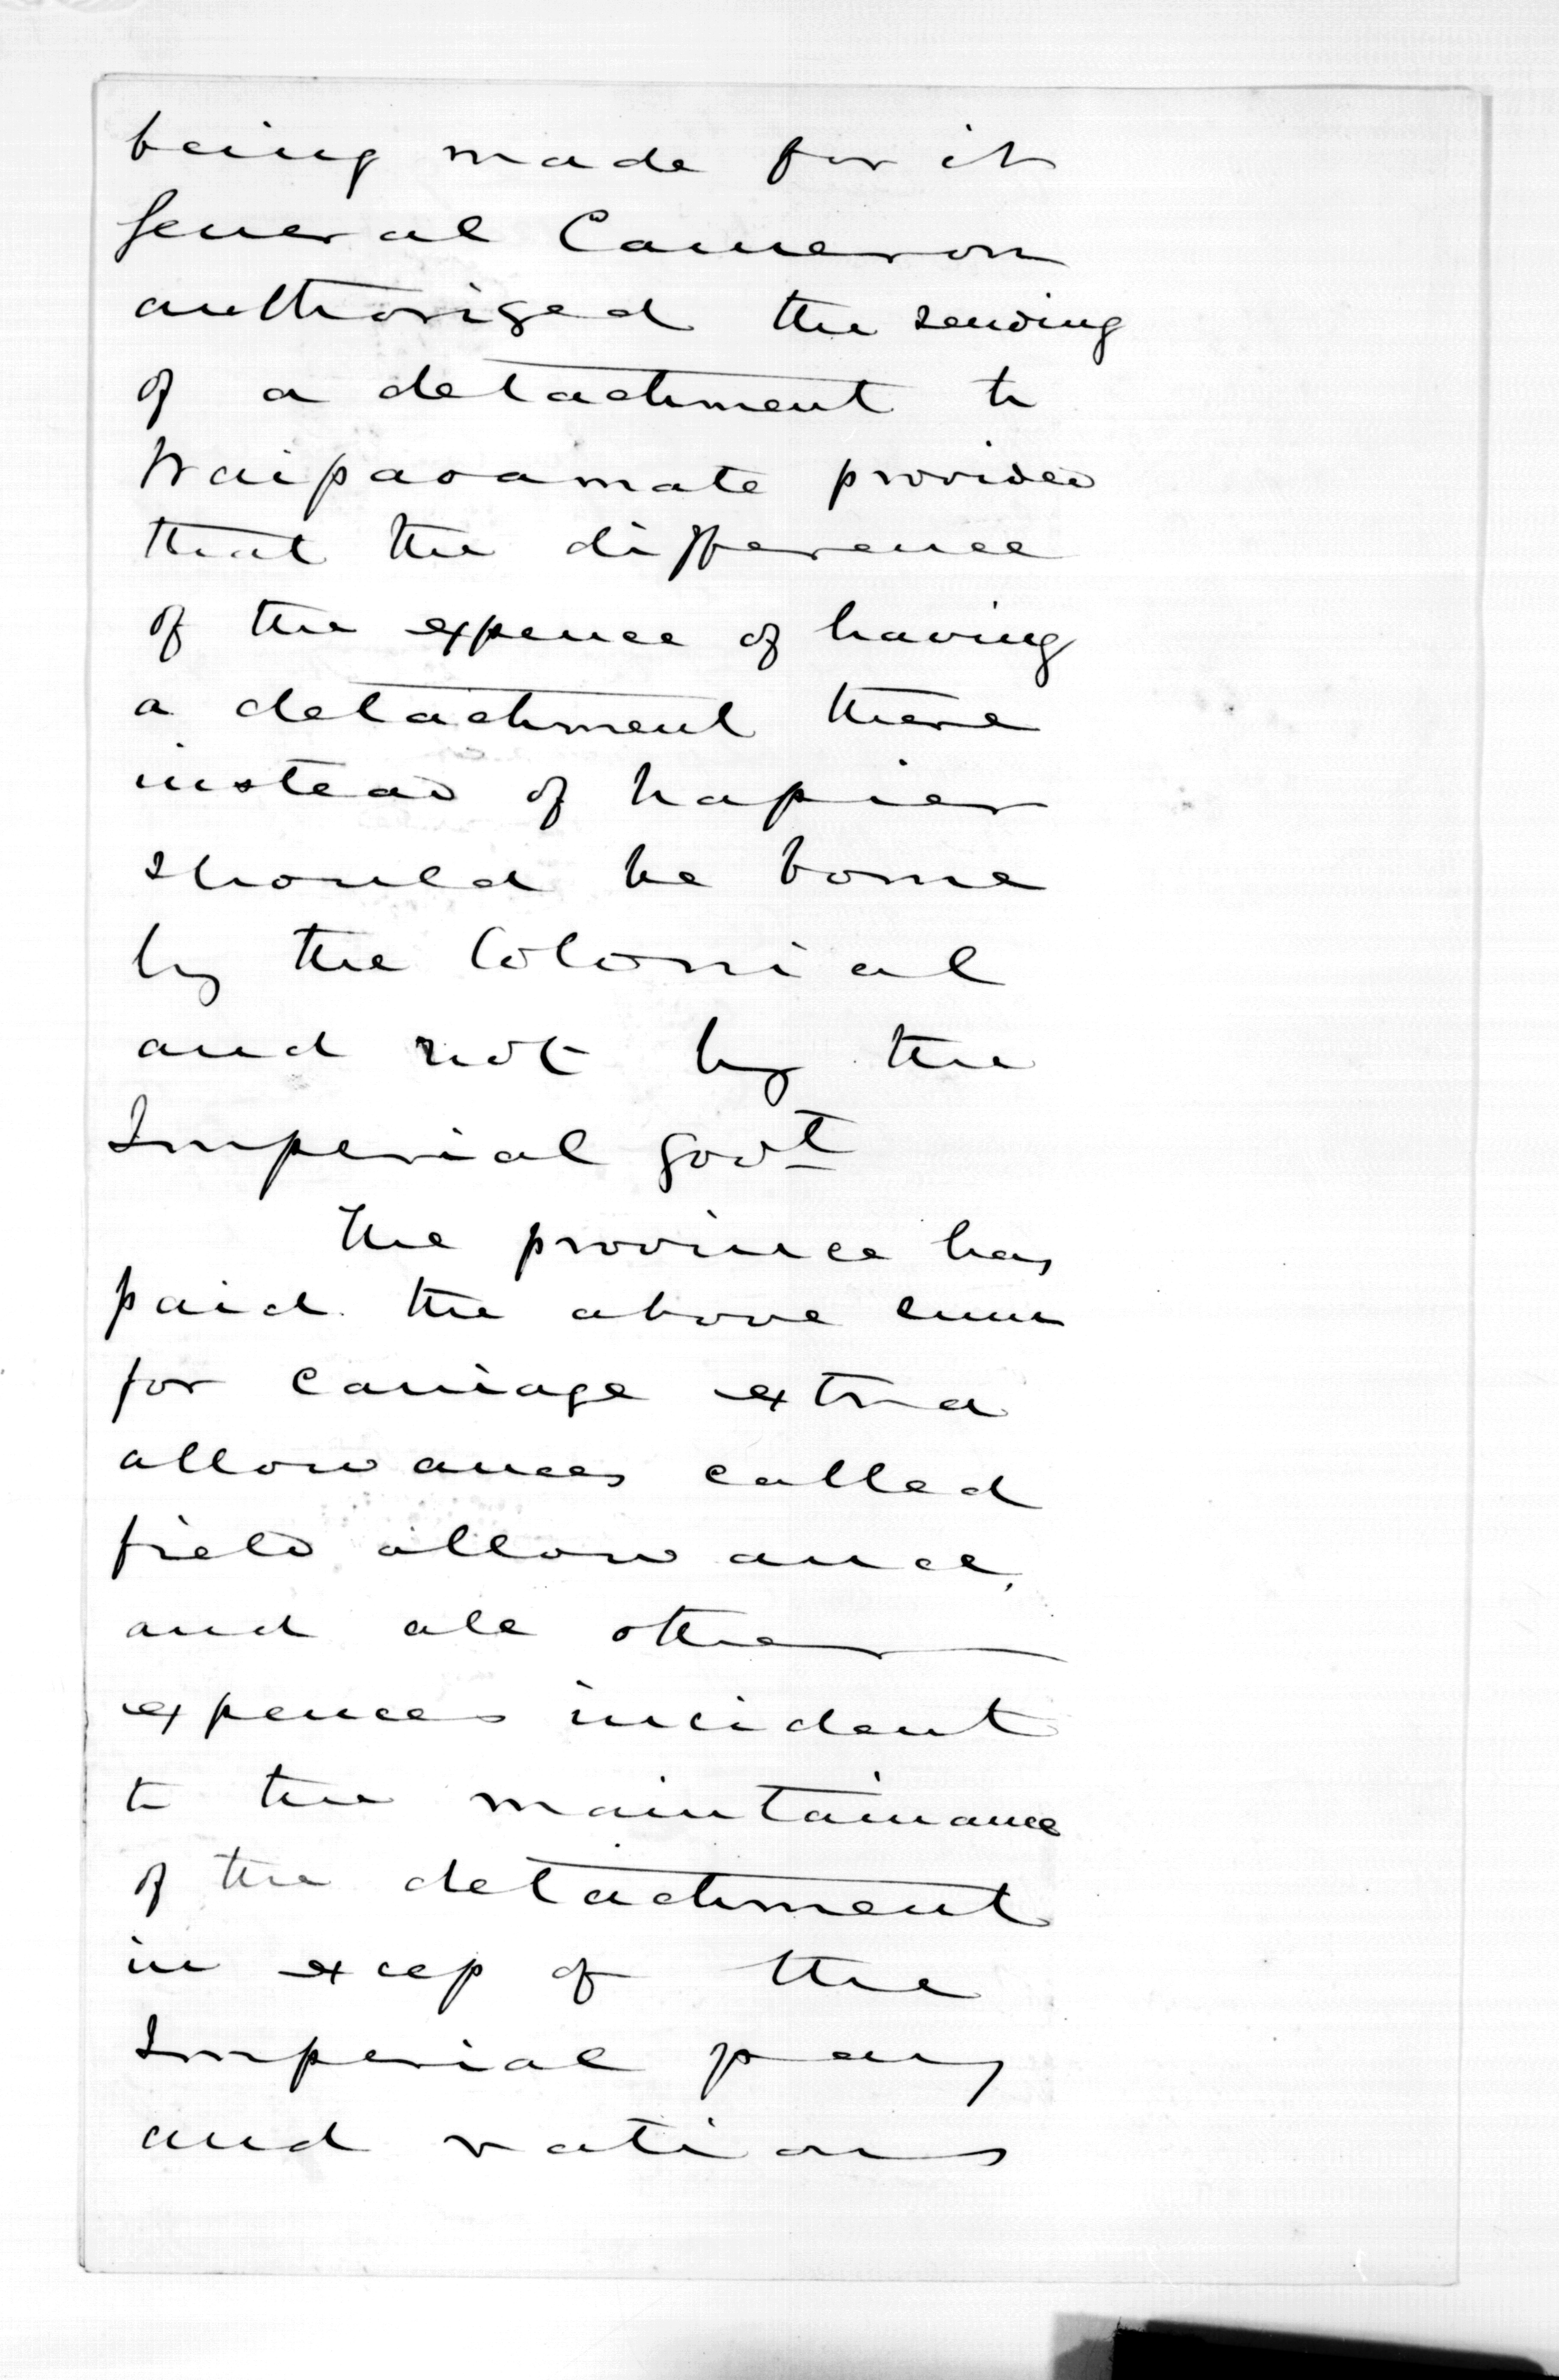 being made for it
General Cameron
authorised the sending
of a detachment to
Waipaoamate provided
that the difference
of the expence of having
a detachment there
instead of Napier
should be borne
by the Colonial
and not by the
Imperial Govt
The province has
paid the above sum
for carriage extra
allowances called
field allowance,
and all other
expences incident
to the maintainance
of the detachment
in excess of the
Imperial pay
and rations